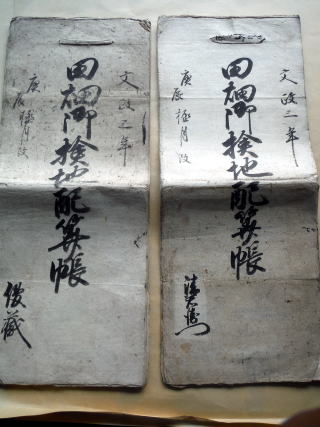 文政三年
田畑御撿地配算帳
庚辰極月改
文政三年
田畑御撿地配算帳
庚辰極月改
俊蔵